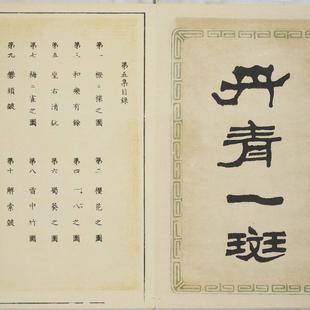 丹青一斑
第五集目録
第一 之圖 第二 櫻花之圖
第三 和樂有餘 第四 一八之圖
第五 坐右清玩 第六 蜀葵之圖
第七 梅ニ雀之圖 第八 雪中竹圖
第九 礬頭皴 第十 解索皴